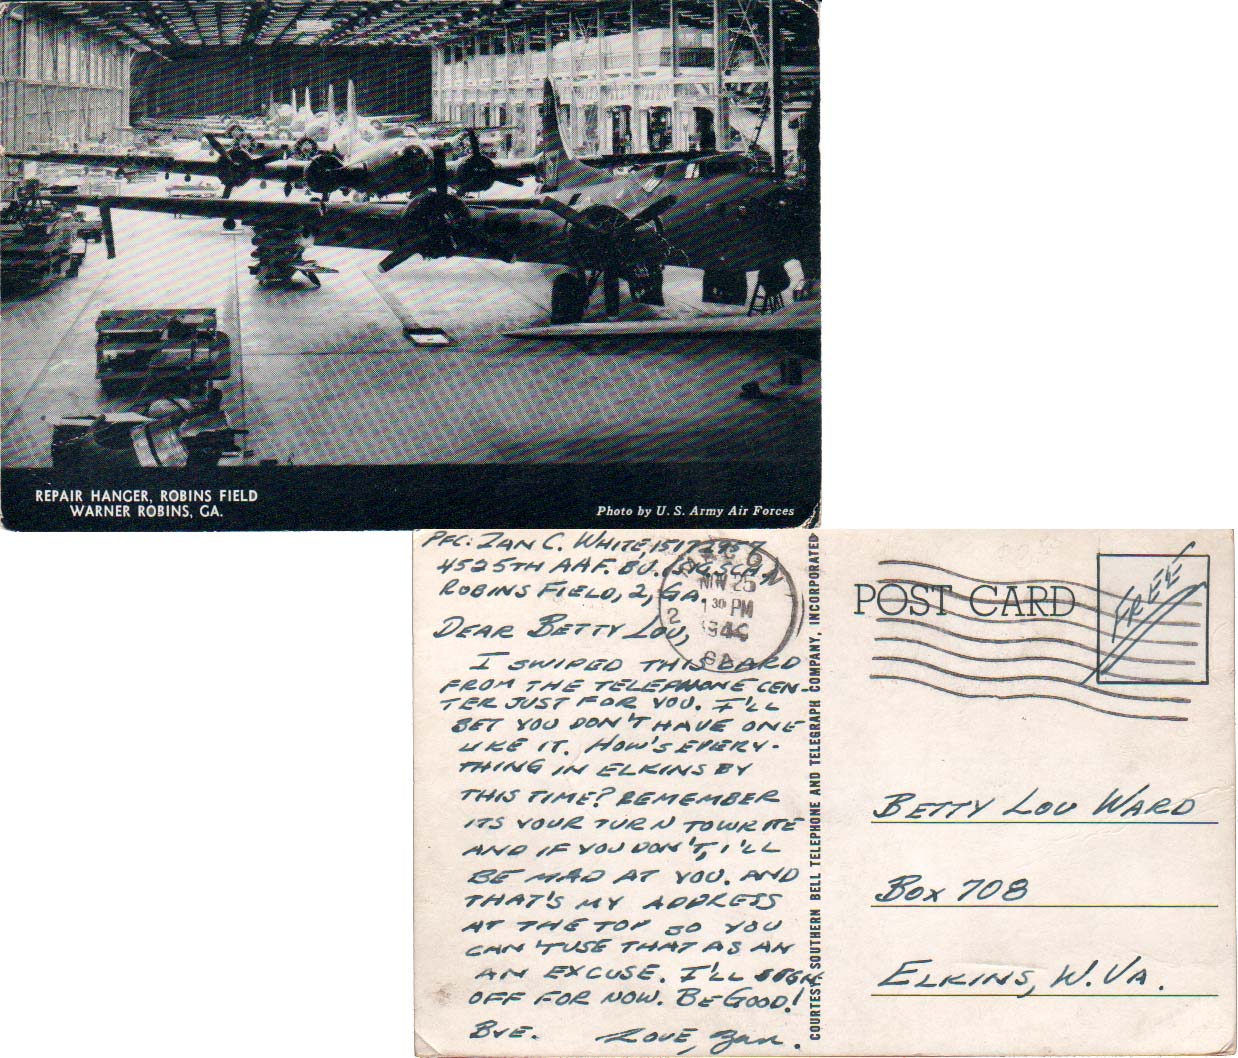 REPAIR HANGER, ROBINS FIELD
WARNER ROBINS, GA.
Photo by U. S. Army Air Forces
PFC. ZAN C. WHITE, 15172957
4525TH AAF. BU. (SIG. SCH.)
ROBINS FIELD, 2, GA.
DEAR BETTY LOU,
I SWIPED THIS CARD
FROM THE TELEPHONE CEN-
TER JUST FOR YOU. I'LL
BET YOU DON'T HAVE ONE
LIKE IT. HOW'S EVERY-
THING IN ELKINS BY
THIS TIME? REMEMBER
ITS YOUR TURN TO WRITE
AND IF YOU DON'T, I'LL
BE MAD AT YOU. AND
THAT'S MY ADDRESS
AT THE TOP SO YOU
CAN'T USE THAT AS AN
AN EXCUSE. I'LL SIGN
OFF FOR NOW. BE GOOD!
BYE. LOVE, Zan.
MACON
NOV 25
1 30 PM
2
GA.
COURTESY, SOUTHERN BELL TELEPHONE AND TELEGRAPH COMPANY, INCORPORATED
POST CARD
FREE
BETTY LOU WARD
BOX 708
ELKINS, W. VA.